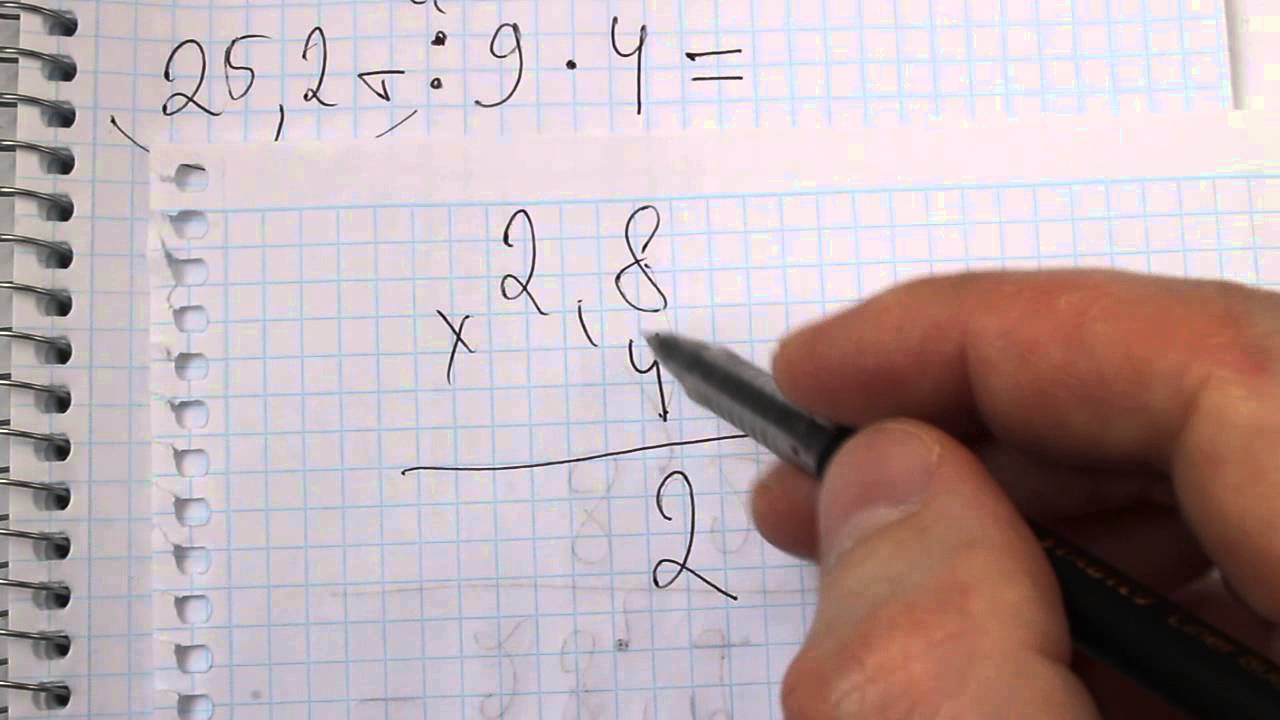 25,2 т : 9 · 4 =
2,8
x
4
2